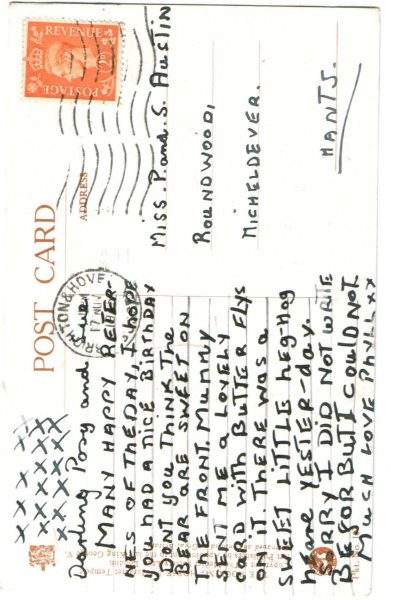 POST CARD
ADDRESS
POSTAGE REVENUE
BRIGHTON & HOVE
17 NOV
Darling Posy and
MANY HAPPY RETER-
NES OF THE DAY, I hope
you HAD A NICE BIRTHDAY
DONT you THINK THE
BEAR ARE SWEET ON
THE FRONT. MUMMY
SENT ME A LOVELY
CARD WITH BUTTER FLYS
ON IT. THERE WAS A
SEET LITTLE heg-hog
heare YESTER-day.
SORRY I DID NOT WRITE
BEFOR BUT I COULD NOT
MUCH LOVE PHYLL XX
Miss. P. and. S. AUSTIN
ROUNDWOOD,
MICHELDEVER.
HANTS.